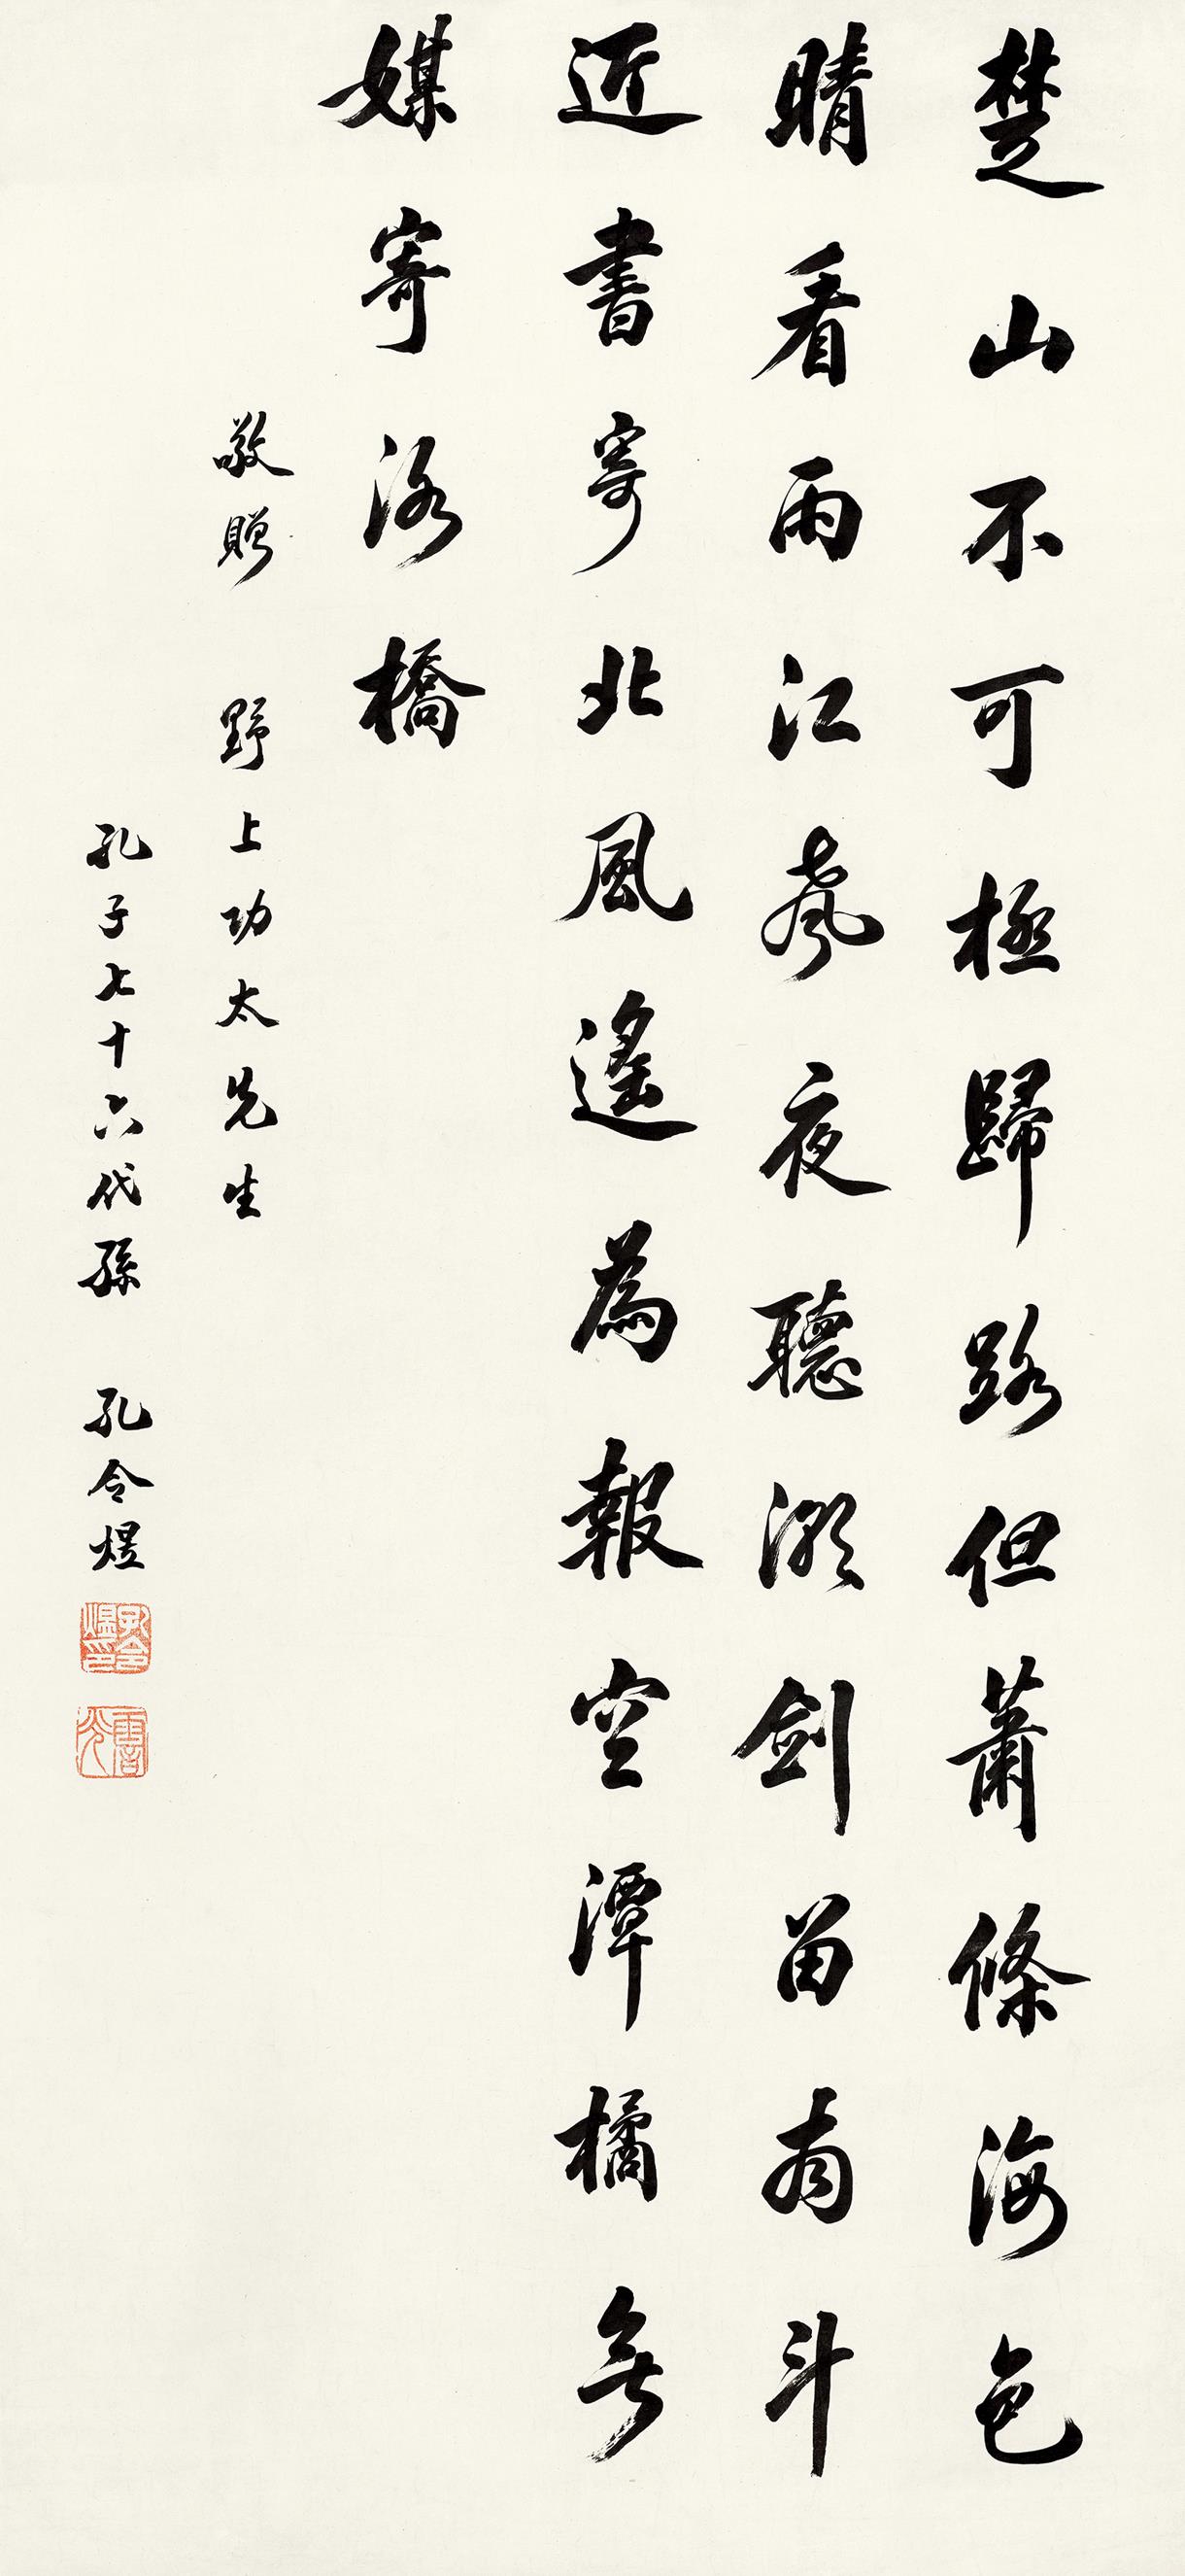 楚山不可極歸路但蕭條海色
晴看雨江聲夜聽潮劍留南斗
近書寄北風遙為報空潭橘無
媒寄洛橋
敬贈 野上功太先生
孔子七十六代孫 孔令煜
孔令煜印